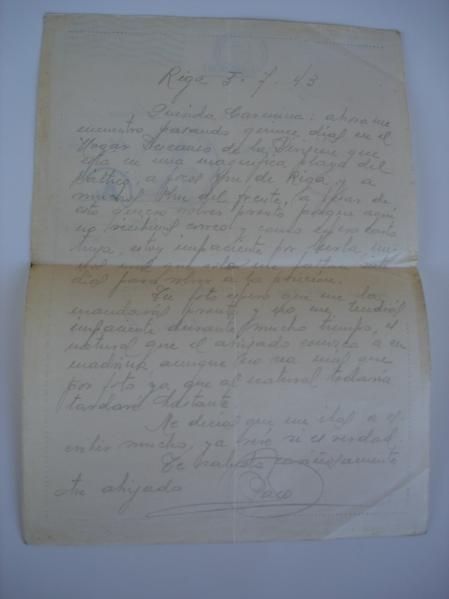 Riga 5. 7. 43
Querida Carmina: ahora me
encuentro pasando quince dias en el
Hogar Descanso de la que
esta en una magnifica playa del
Baltico a pocos Km de Riga y a
muchos Km del frente, a pesar de
esto quiero volver pronto porque aqui
no recibimos correo y como espero carta
tuya, estoy impaciente por
dias para volver a la posicion.
Tu foto espero que me la
mandaras pronto y no me tendras
impaciente durante mucho tiempo, es
natural que el ahijado conozca a su
madrina aunque no sea mas que
por foto ya que al natural todavia
tardare bastante.
Me decias que me ibas a es
cribir mucho, ya vere si es verdad
Te saluda cariñosamente
tu ahijado Paco